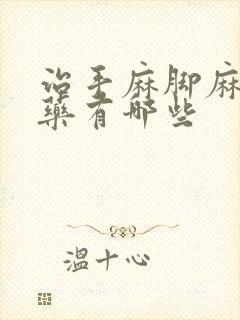 治手麻脚麻
藥有哪些
溫十心